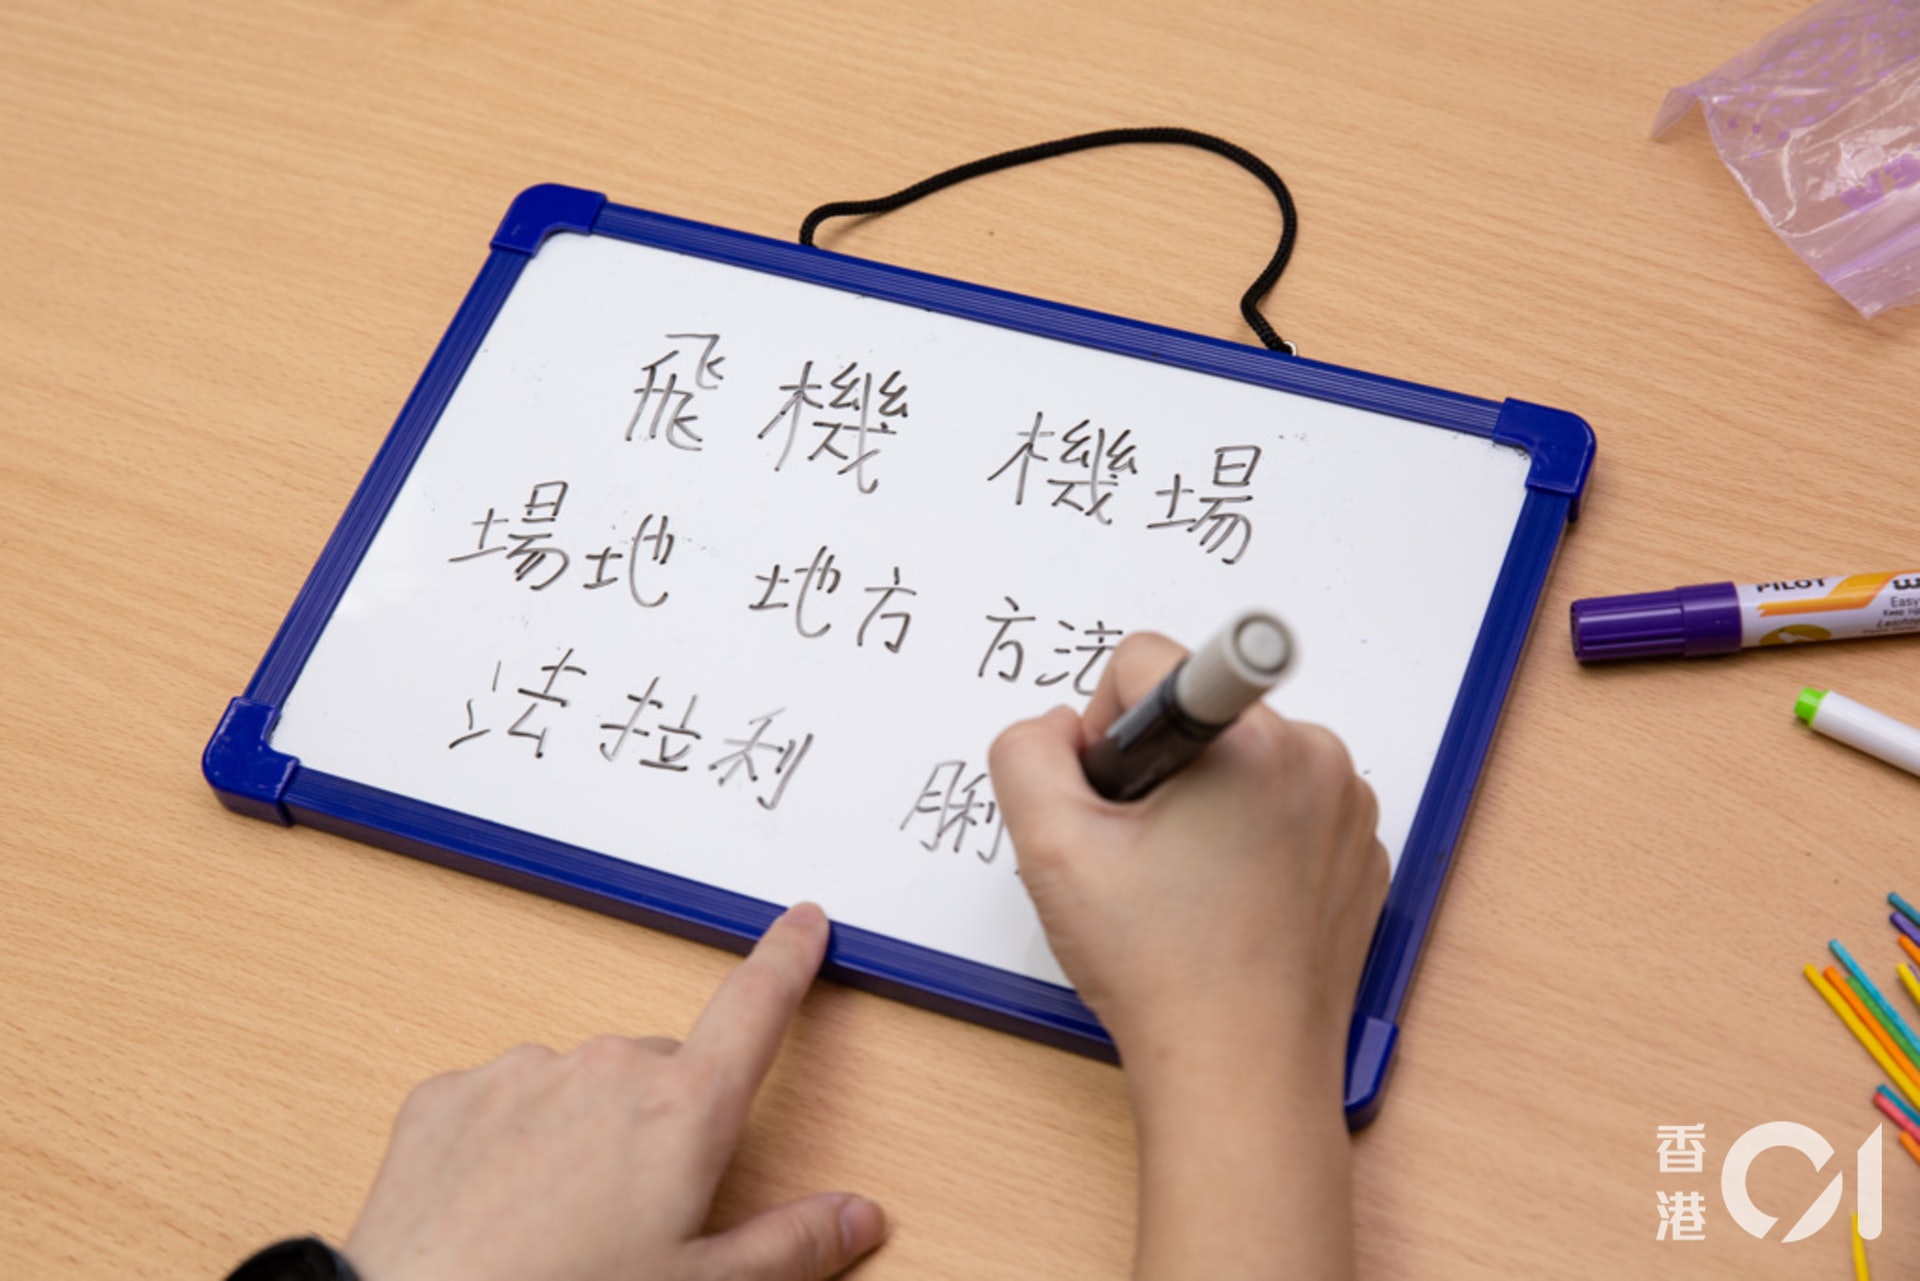 飛機 機場
場地 地方 方法
法拉利 脷
PILOT
Easy
香港01